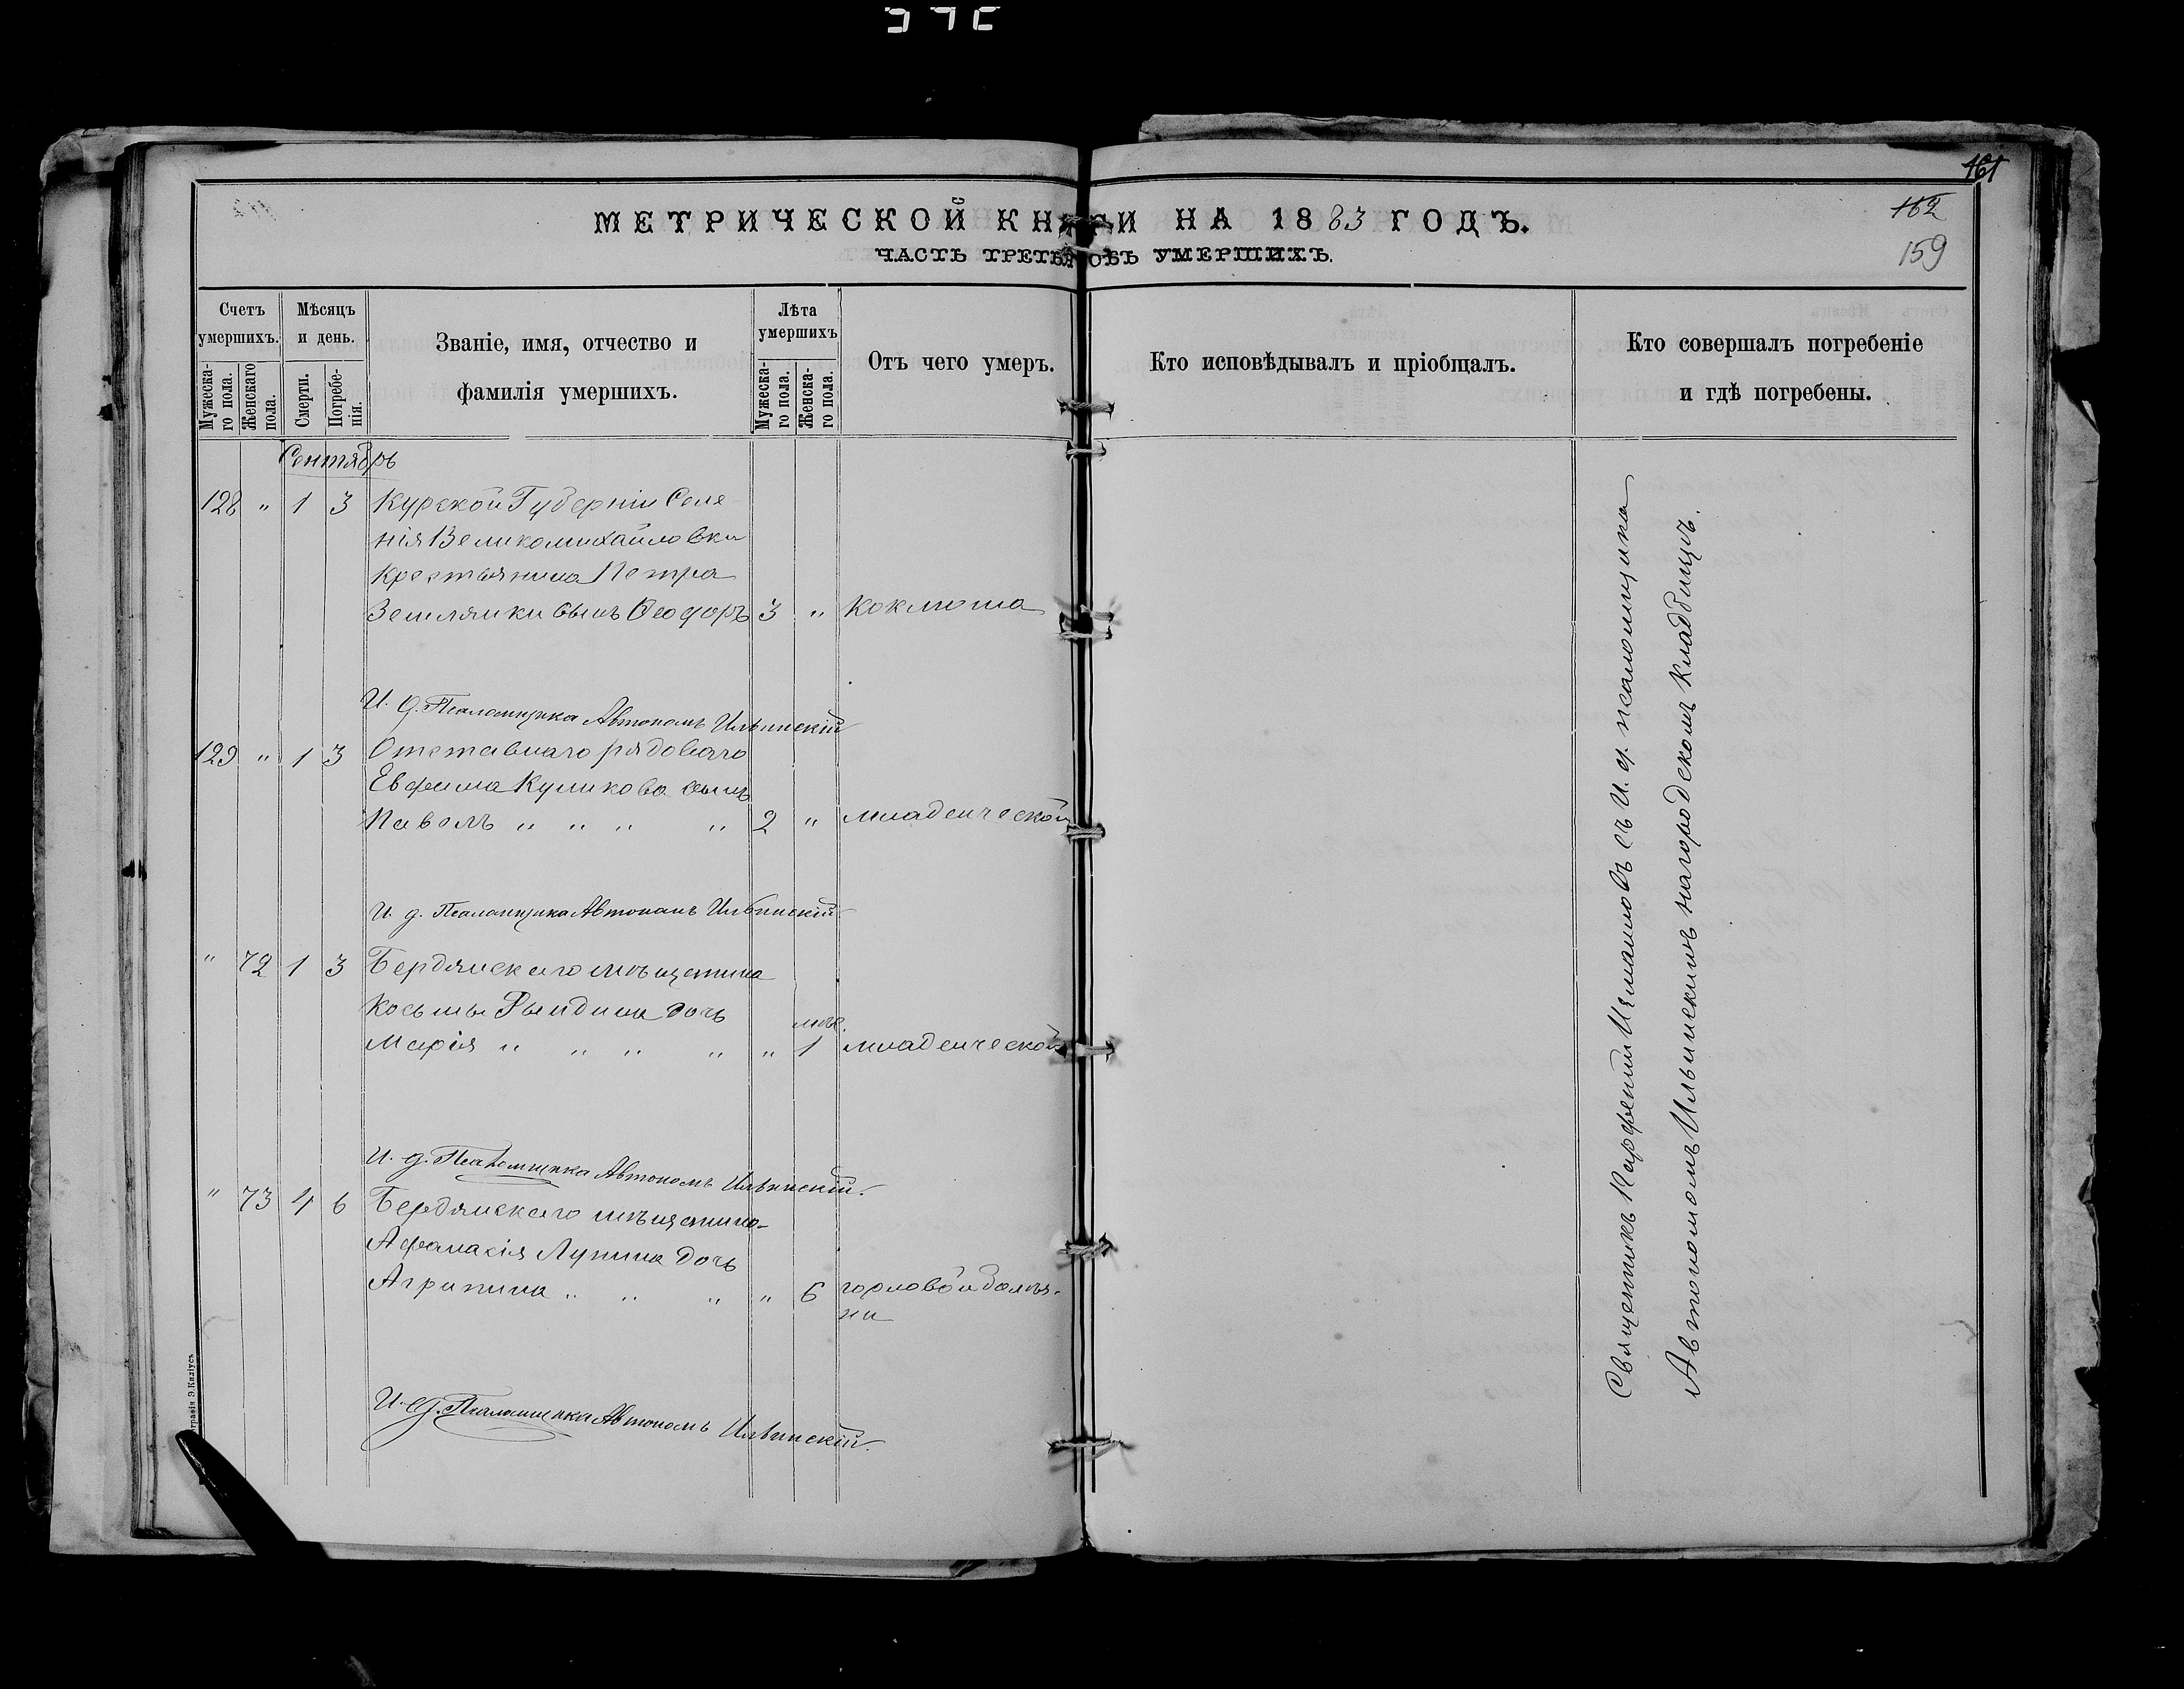 161
162
159
МЕТРИЧЕСКОЙ КНИГИ НА 1883 ГОДЪ.
ЧАСТЬ ТРЕТЬЯ ОБЪ УМЕРШИХЪ.
Счетъ умершихъ.
Мужеска-го пола.
Женскаго пола.
Мѣсяцъ и день.
Смерти.
Погребе-нія.
Званіе, имя, отчество и
фамилія умершихъ.
Лѣта умершихъ
Мужеска-го пола.
Женска-го пола.
Отъ чего умеръ.
Кто исповѣдывалъ и пріобщалъ.
Кто совершалъ погребеніе
и гдѣ погребены.
Сентябрь
128 " 1 3 Курской Губерніи Селе
нія Великомихайловки
Крестьянина Петра
Землянки сынъ Ѳеодоръ 3 " Коклюша
И. д. Псаломщика Автономъ Ильинскій
129 " 1 3 Отставнаго рядоваго
Евфима Куликова сынъ
Павелъ " " " " 2 " младенческой
И. д. Псаломщика Автономъ Ильинскій
" 72 1 3 Бердянскаго мѣщанина
Косьмы Рындина дочь
Марія " " " " " мѣс. 1 младенческой
И. д. Псаломщика Автономъ Ильинскій.
" 73 4 6 Бердянскаго мѣщанина
Афанасія Лупина дочь
Агрипина " " " " 6 горловой болѣз-
ни
И. д. Псаломщика Автономъ Ильинскій.
Священникъ Парфеній съ И. д. псаломщика
Автономомъ Ильинскимъ на городскомъ кладбищѣ.
Э. Киліусъ